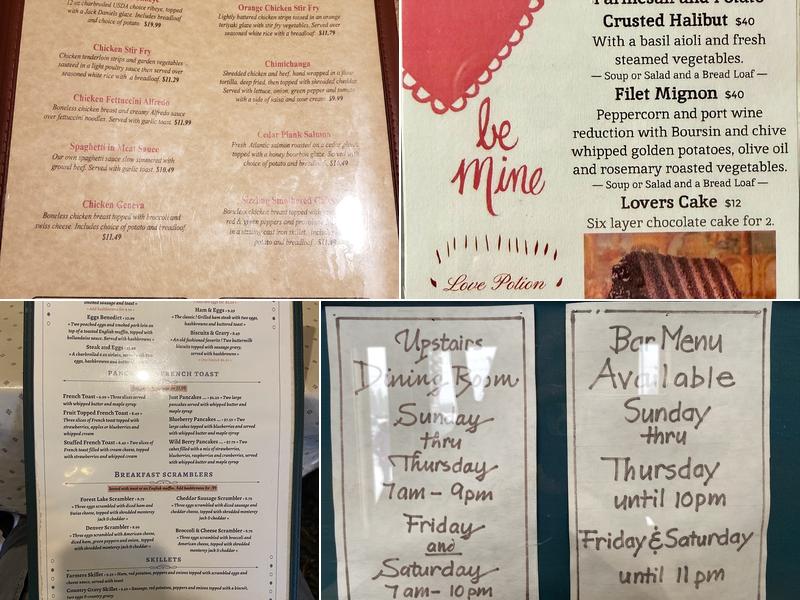 12 oz charbroiled USDA choice ribeye, topped
with a Jack Daniels glaze. Includes breadloaf
and choice of potato $19.99
Chicken Stir Fry
Chicken tenderloin strips and garden vegetables
sauteed in a light poultry sauce then served over
seasoned white rice with a breadloaf $11.29
Chicken Fettuccini Alfredo
Boneless chicken breast and creamy Alfredo sauce
over fettuccini noodles. Served with garlic toast. $11.99
Spaghetti in Meat Sauce
Our own spaghetti sauce slow simmered with
ground beef. Served with garlic toast. $10.49
Chicken Geneva
Boneless chicken breast topped with broccoli and
swiss cheese. Includes choice of potato and breadloaf
$11.49
Orange Chicken Stir Fry
Lightly battered chicken strips tossed in an orange
teriyaki glaze with stir fry vegetables. Served over
seasoned white rice with a breadloaf $11.79
Chimichanga
Shredded chicken and beef, hand wrapped in a flour
tortilla, deep fried, then topped with shredded cheddar.
Served with lettuce, onion, green pepper and tomato
with a side of salsa and sour cream $9.99
Cedar Plank Salmon
Fresh Atlantic salmon roasted on a cedar plank,
topped with a honey bourbon glaze. Served with
choice of potato and breadloaf
Sizzling
Boneless chicken breast topped with
red & green peppers and
in a sizzling cast iron skillet. Includes
potato and breadloaf
Parmesan and Potato
Crusted Halibut $40
With a basil aioli and fresh
steamed vegetables.
— Soup or Salad and a Bread Loaf —
Filet Mignon $40
Peppercorn and port wine
reduction with Boursin and chive
whipped golden potatoes, olive oil
and rosemary roasted vegetables.
— Soup or Salad and a Bread Loaf —
Lovers Cake $12
Six layer chocolate cake for 2.
be
mine
Love Potion
Eggs Benedict
• Two poached eggs and smoked pork loin on
top of a toasted English muffin, topped with
hollandaise sauce. Served with hashbrowns •
Steak and Eggs
Ham & Eggs
• The classic! Grilled ham steak with two eggs,
hashbrowns and buttered toast •
Biscuits & Gravy
• An old fashioned favorite! Two buttermilk
biscuits topped with sausage gravy,
served with hashbrowns •
FRENCH TOAST
French Toast
• Three slices served
with whipped butter and maple syrup
Fruit Topped French Toast
Three slices of French toast topped with
strawberries, apples or blueberries and
whipped cream
Stuffed French Toast
• Two slices of
French toast filled with cream cheese, topped
with strawberries and whipped cream
Just Pancakes
• Two large
pancakes served with whipped butter and
maple syrup
Blueberry Pancakes
• Two
large cakes filled with blueberries, served
with whipped butter and maple syrup
Wild Berry Pancakes
• Two
cakes filled with a mix of strawberries,
blueberries, raspberries and cranberries, served
with whipped butter and maple syrup
BREAKFAST SCRAMBLERS
Served with toast or an English muffin. Add hashbrowns for .99
Forest Lake Scrambler
• Three eggs scrambled with diced ham and
Swiss cheese, topped with shredded monterey
jack & cheddar •
Denver Scrambler
• Three eggs scrambled with American cheese,
diced ham, green peppers and onion, topped
with shredded monterey jack & cheddar •
Cheddar Sausage Scrambler
• Three eggs scrambled with diced sausage and
cheddar cheese, topped with shredded monterey
jack & cheddar •
Broccoli & Cheese Scrambler
• Three eggs scrambled with broccoli and
American cheese, topped with shredded
monterey jack & cheddar •
SKILLETS
Farmers Skillet
• Ham, red potatoes, peppers and onions topped with scrambled eggs and
cheese sauce, served with toast
Country Gravy Skillet
• Sausage, red potatoes, peppers and onions topped with a biscuit,
two eggs & country gravy
Upstairs
Dining Room
Sunday
thru
Thursday
7am - 9pm
Friday
and
Saturday
7am - 10pm
Bar Menu
Available
Sunday
thru
Thursday
until 10pm
Friday & Saturday
until 11pm